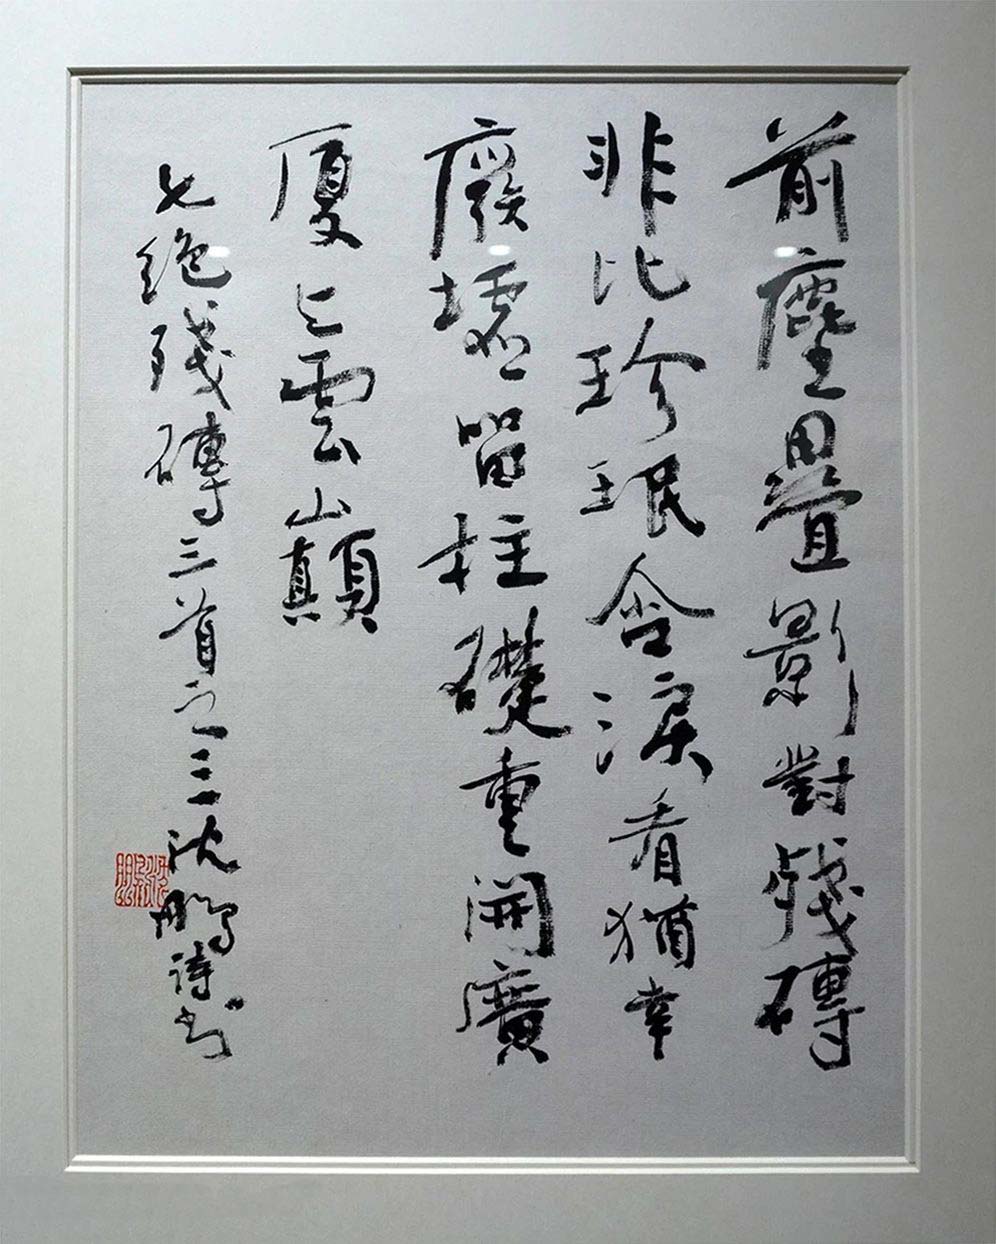 前塵疊影對殘磚
非比珍珉含淚看猶幸
廢墟留柱礎重開廣
廈上雲山巔
七絕殘磚三首之三沈鵬詩書
沈鵬